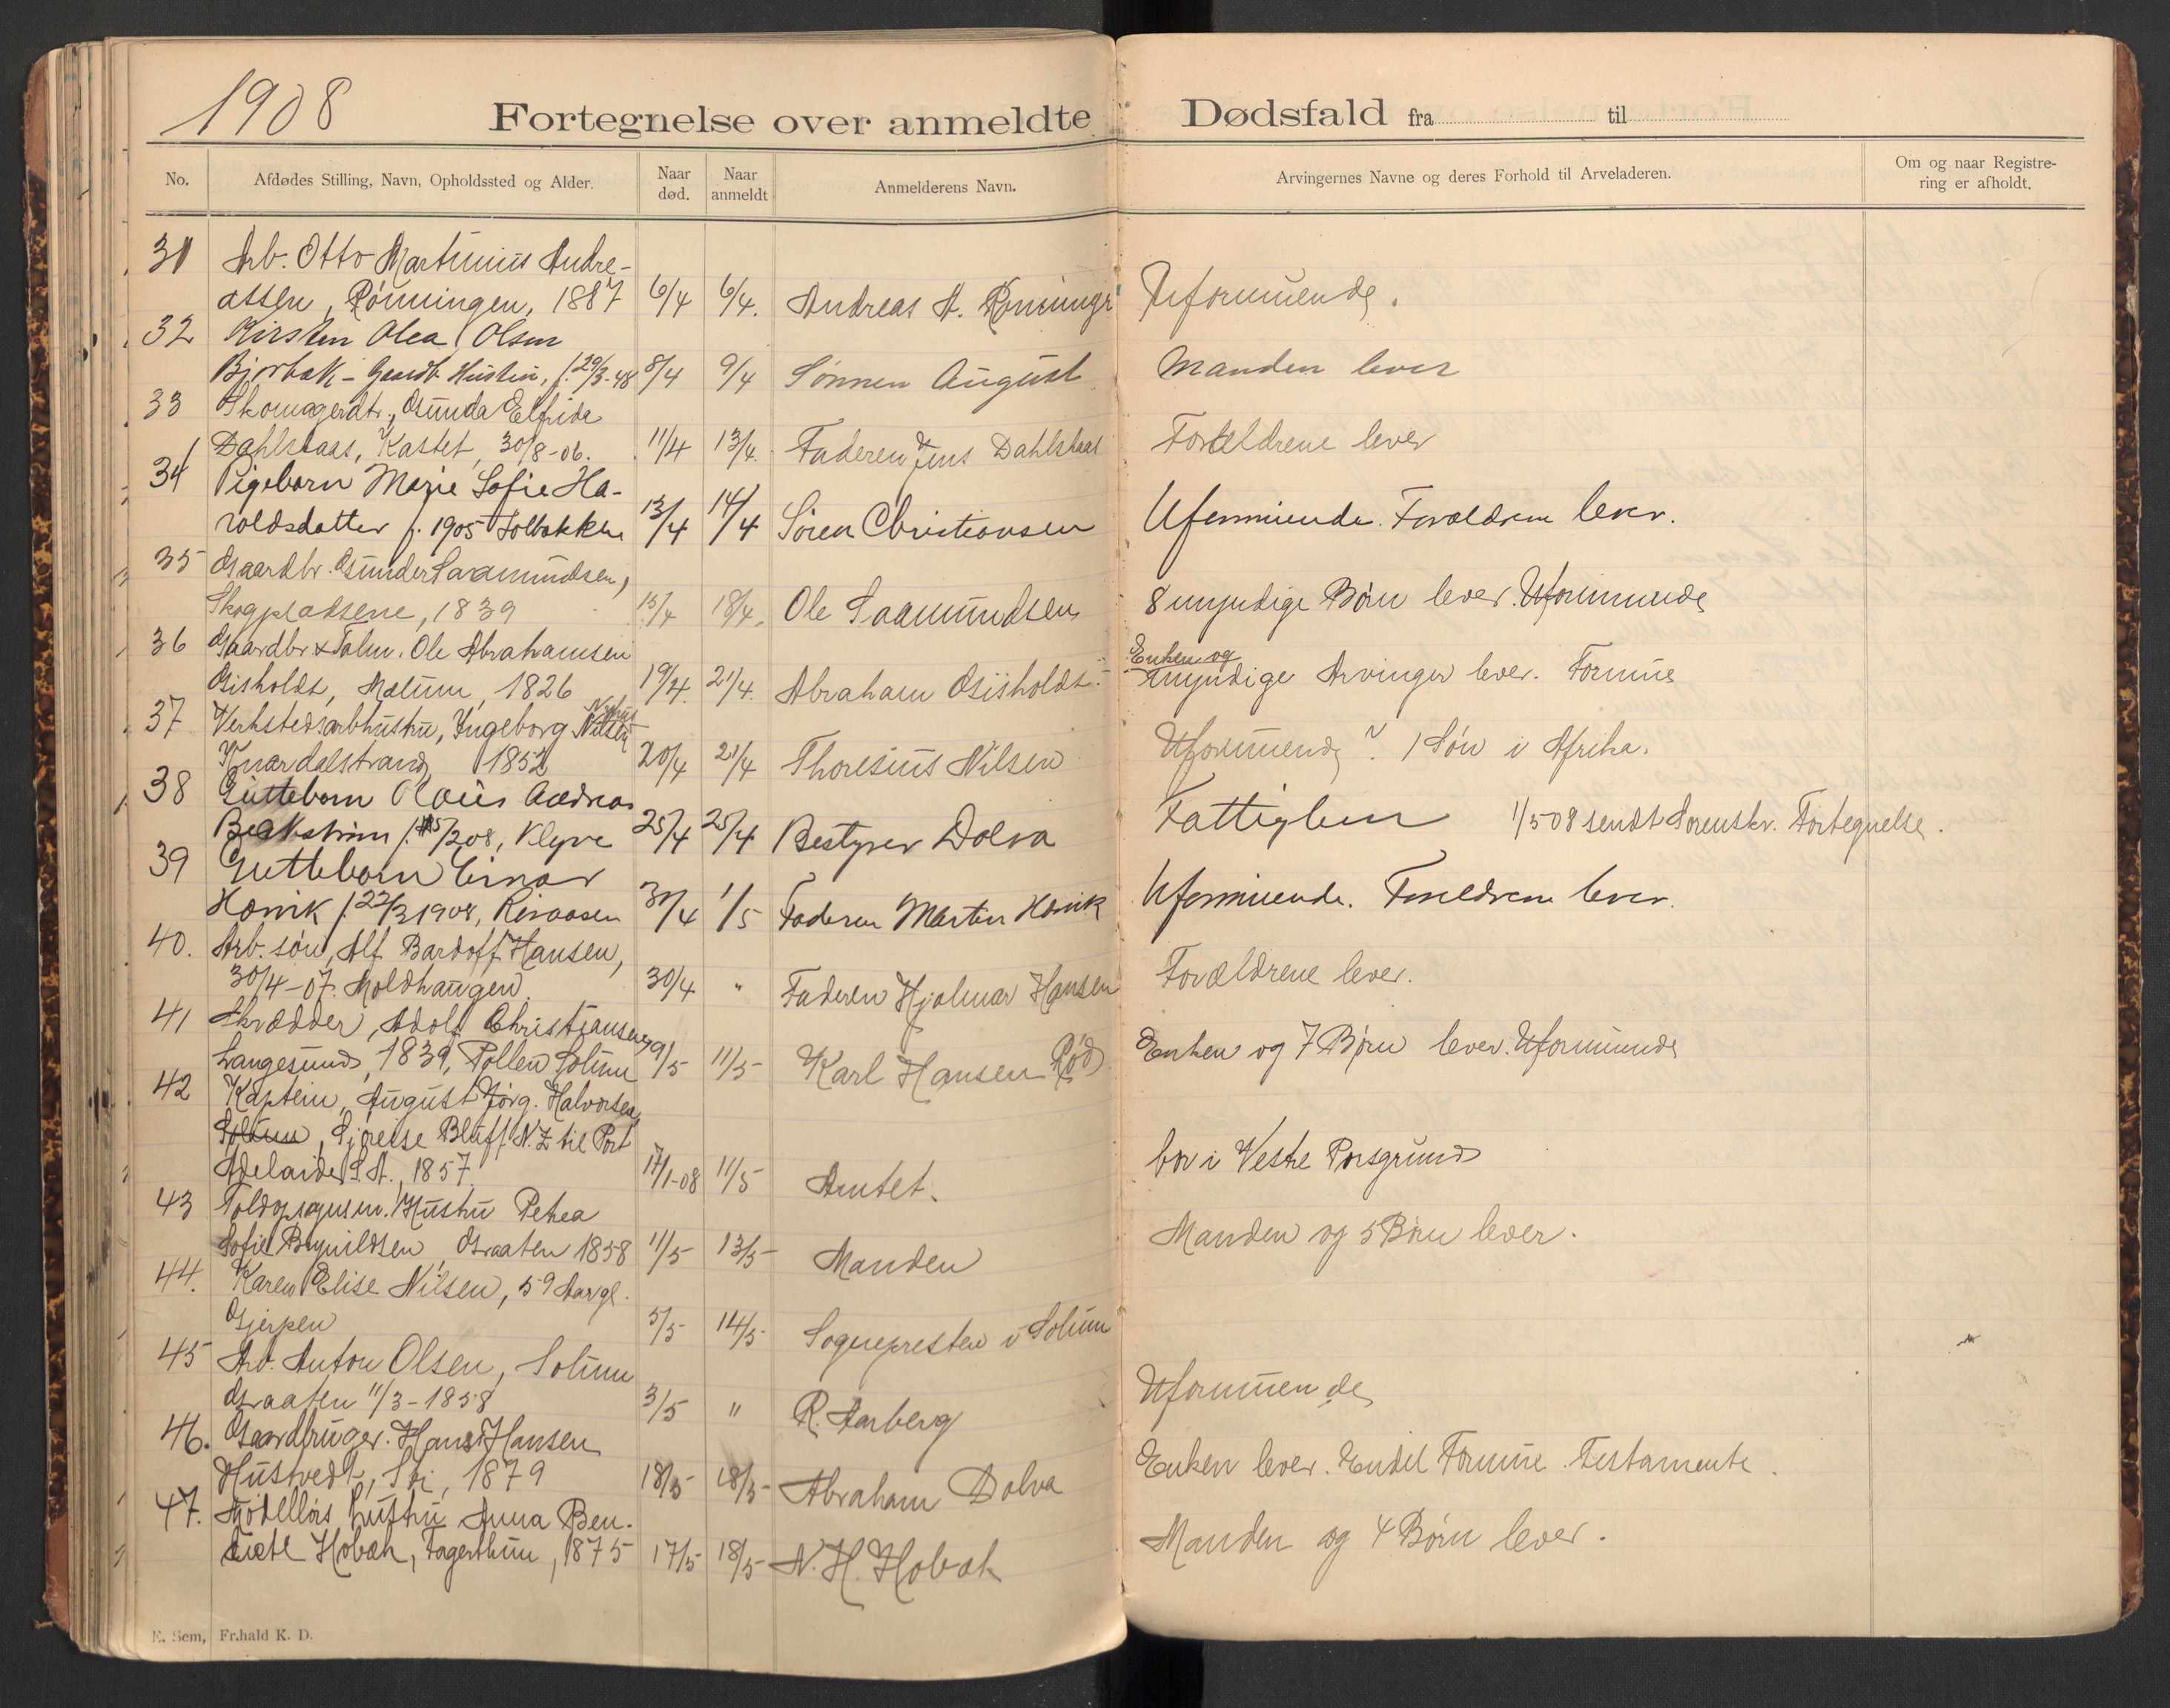 1908
Fortegnelse over anmeldte Dødsfald fra til
No. Afdødes Stilling, Navn, Opholdssted og Alder. Naar død. Naar anmeldt Anmelderens Navn. Arvingernes Navne og deres Forhold til Arveladeren. Om og naar Registrering er afholdt.
31 Arb. Otto Martinius Andre-
assen, Rönningen, 1887 6/4 6/4. Andreas A. Rönning Uformuende.
32 Kirsten Olea Olsen
Bjorbæk - Gaardb. Hustru, f. 29/3-48 8/4 9/4 Sönnen August Manden lever
33 Skomagerdtr., Gunda Elfrida
Dahlstaas, Kastet, 30/8-06. 11/4 13/4. Faderen Jens Dahlstaas Forældrene lever
34 Pigebarn Marie Sofie Ha-
roldsdatter f. 1905 Solbakken 13/4 14/4 Sören Christiansen Uformuende. Forældrene lever.
35 Gaardbr. Gunder Saamundsen,
Skogpladsene, 1839 15/4 18/4. Ole Saamundsen 8 myndige Börn lever. Uformuende
36 Gaardbr & Tølm. Ole Abrahamsen
Gisholdt, Mælum, 1826 19/4. 21/4. Abraham Gisholdt Enken og
myndige Arvinger lever. Formue
37 Verkstedsarbhustru, Ingeborg Nilsen Nyhus
Knardalstrand 1852 20/4 21/4 Thoresius Nilsen Uformuende? 1 Sön i Afrika.
38 Guttebarn Olaus Andreas
Bækström f. 15/2 08, Klyve 25/4 25/4 Bestyrer Dolva Fattiglem 1/5 08 sendt Sorenskr. Fortegnelse.
39 Guttebarn Einar
Hovik f. 22/3 1908, Risaasen 30/4 1/5 Faderen Martin Hovik Uformuende. Forældrene lever.
40. Arb. sön, Alf Bardoff Hansen,
30/4-07. Moldhaugen 30/4 " Faderen Hjalmar Hansen Forældrene lever.
41 Skrædder, Adolf Christiansen,
Langesund, 1839, Pollen Solum 9/5 11/5 Karl Hansen Rød Enken og 7 Børn lever. Uformuende
42 Kaptein, August Jörg. Halvorsen,
Solum, Sjöreise Bluff N.Z til Port
Adelaide S.A., 1857. 17/1-08 11/5 Amtet. bor i Vestre Porsgrund
43 Toldopsynsm. Hustru Petrea
Sofie Brynildsen, Graaten 1858 11/5 13/5 Manden Manden og 5 Börn lever.
44. Karen Elise Nilsen, 59 Aar gl.
Gjerpen 5/5 14/5 Sognepresten i Solum
45 Arb. Anton Olsen, Solum
Graaten 11/3-1858 3/5 " R. Aarberg Uformuende
46. Gaardbruger. Hans Hansen
Hustvedt, Ski, 1879 18/5 18/5 Abraham Dolva Enken lever. Endel Formue. Testamente.
47. Modellørs hustru Anna Ben-
dicte Hobæk, Fagerthun, 1875 17/5 18/5 N. H. Hobæk Manden og 4 Börn lever.
E. Sem, Fr.hald K. D.